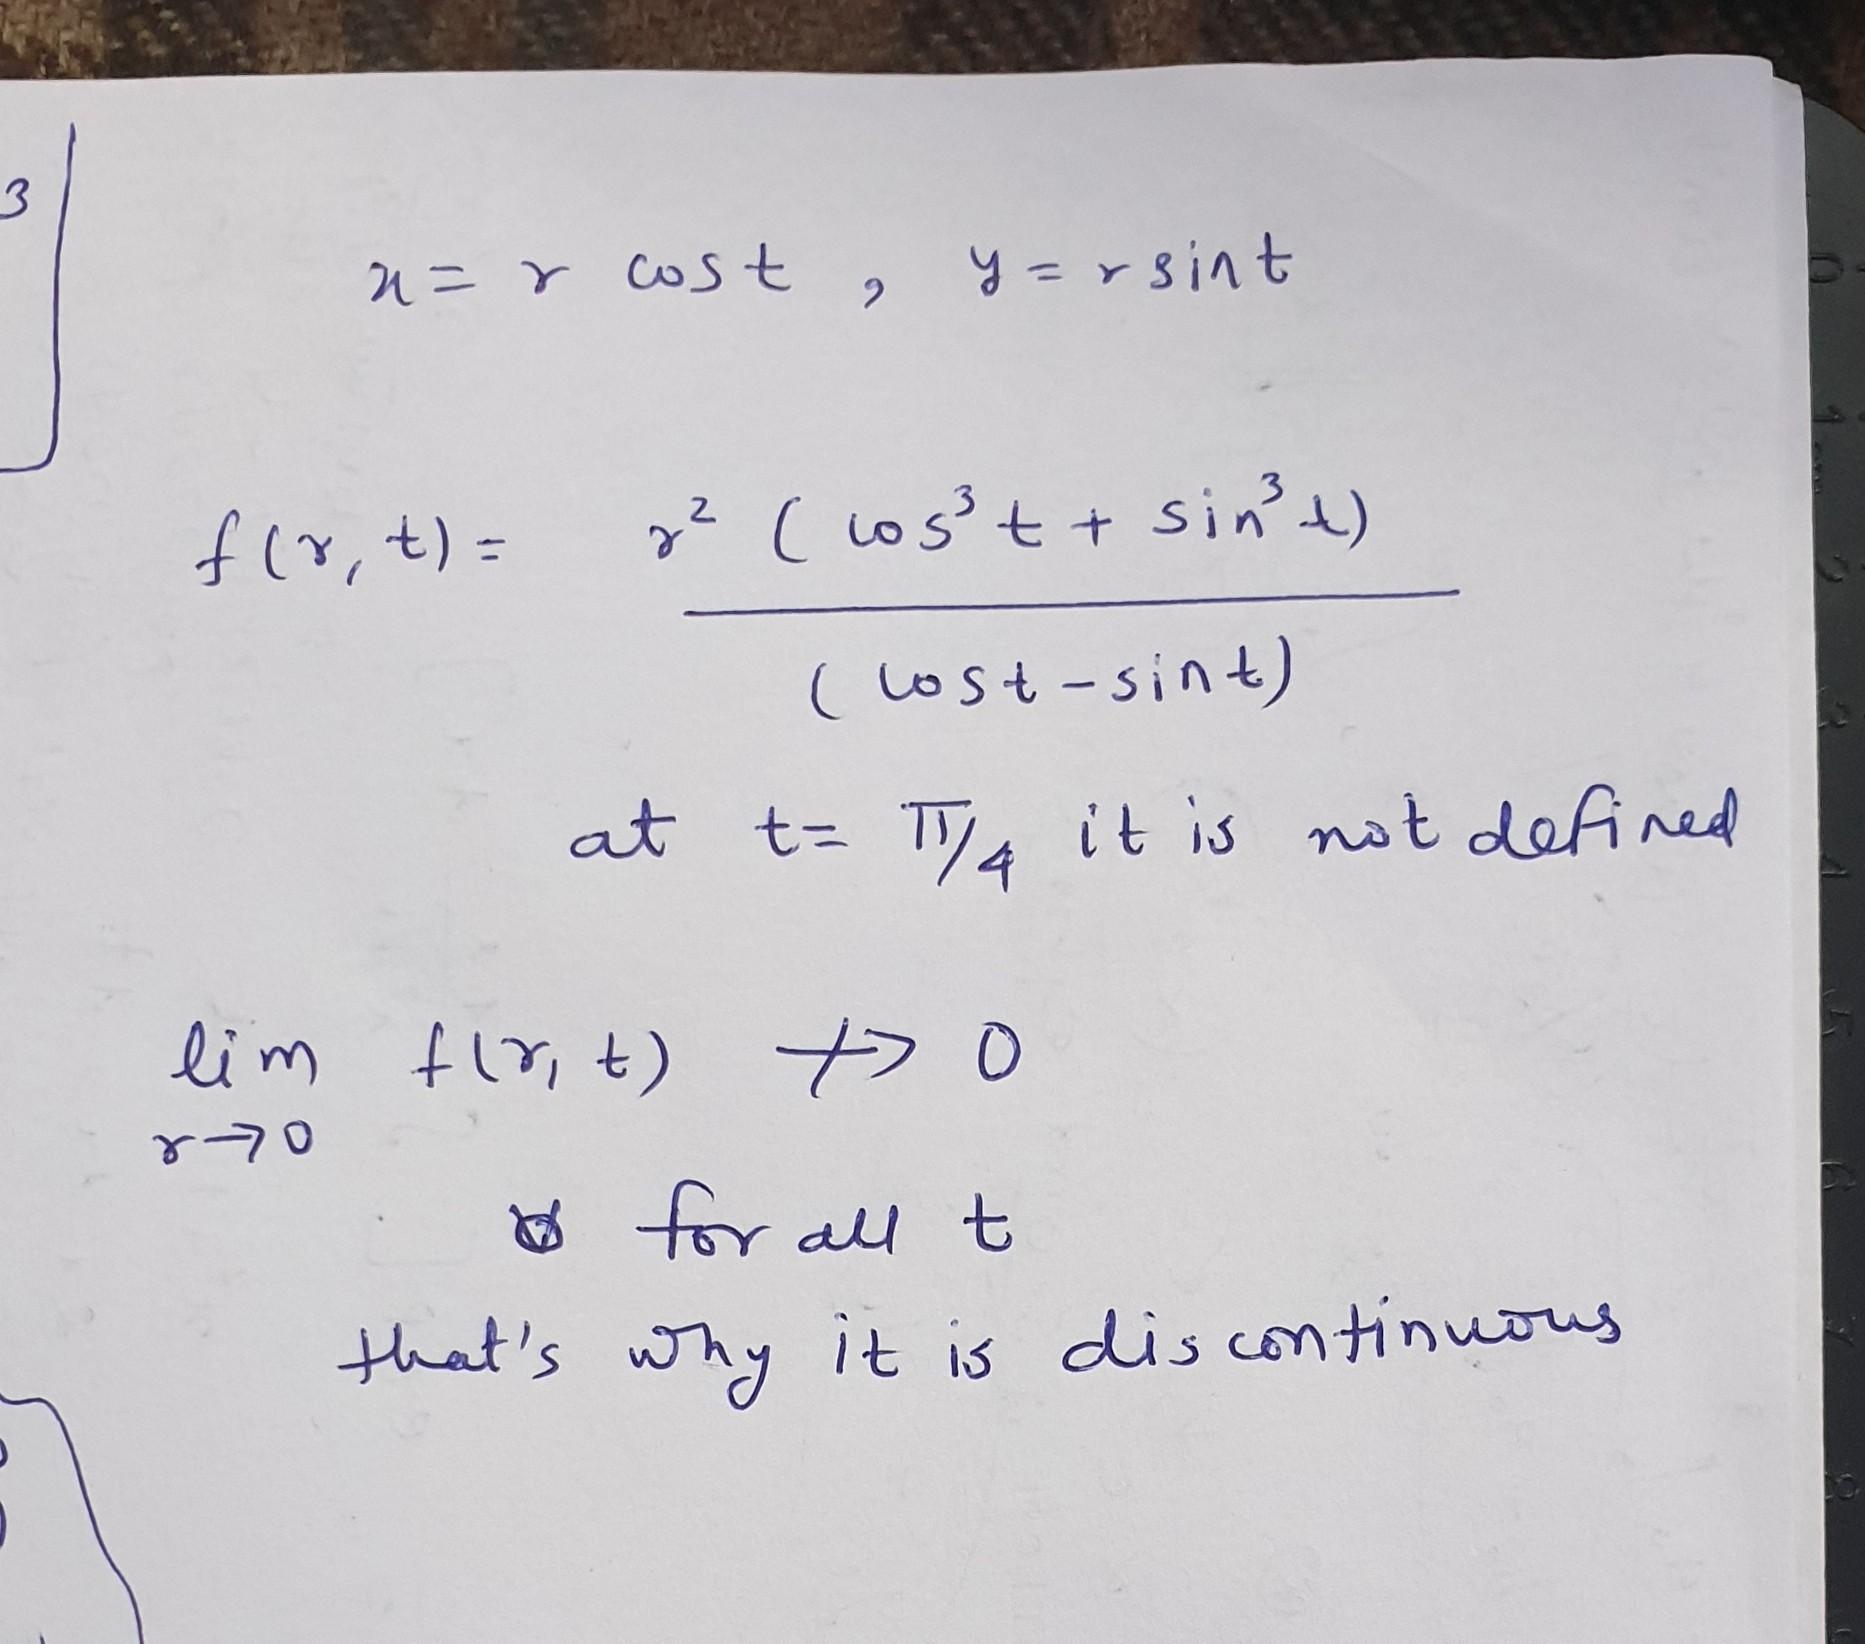 3
x = r cos t , y = r sin t
f(r, t) = r² ( cos³ t + sin³ t)
( cos t - sin t)
at t = π/4 it is not defined
lim f(r, t) ↛ 0
r→0
for all t
that's why it is discontinuous